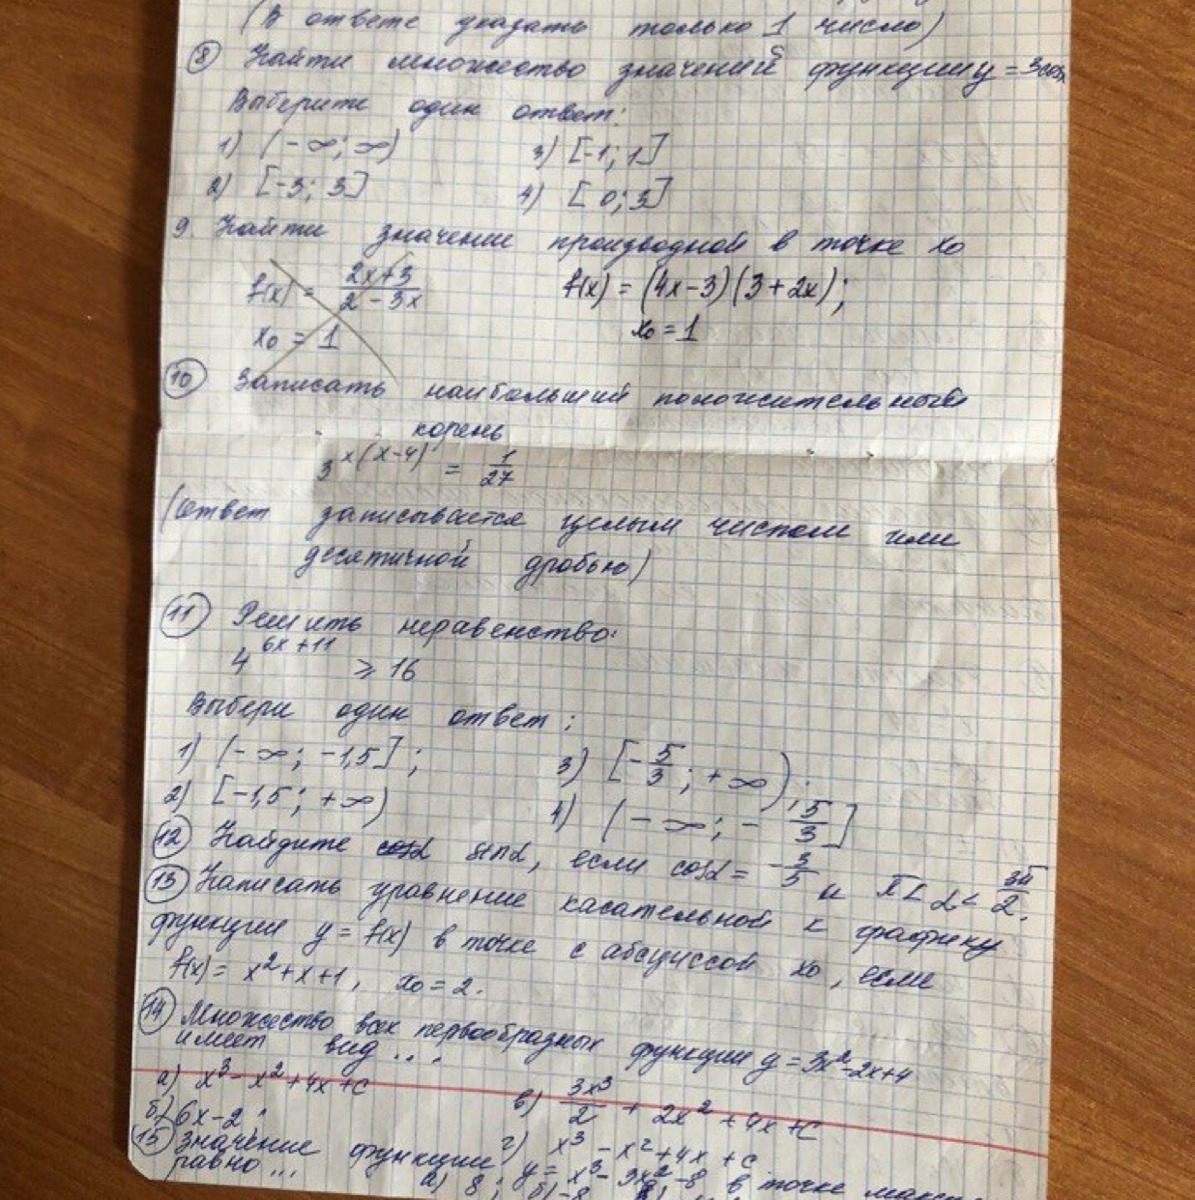 (В ответе указать только 1 число)
8 Найти множество значений функции y = 3cosx
Выберите один ответ:
1) (-∞; ∞) 3) [-1; 1]
2) [-3; 3] 4) [0; 3]
9. Найти значение производной в точке x₀
f(x) = (2x+3)/(2-3x) f(x) = (4x-3)(3+2x);
x₀ = 1 x₀ = 1
10 Записать наибольший положительный
корень
3^(x(x-4)) = 1/27
(Ответ записывается целым числом или
десятичной дробью)
11 Решить неравенство:
4^(6x+11) ≥ 16
Выбери один ответ:
1) (-∞; -1,5]; 3) [-5/3; +∞);
2) [-1,5; +∞) 4) (-∞; -5/3]
12 Найдите sinα, если cosα = -3/5 и π < α < 3π/2.
13 Написать уравнение касательной к графику
функции y = f(x) в точке с абсциссой x₀, если
f(x) = x²+x+1, x₀ = 2.
14 Множество всех первообразных функции y = 3x²-2x+4
имеет вид...
а) x³-x²+4x+c в) 3x³/2 + 2x² + 4x + c
б) 6x-2; г) x³-x²+4x+c
15 Значение функции y = x³-3x²-8 в точке
равно... а) 8; б) -8